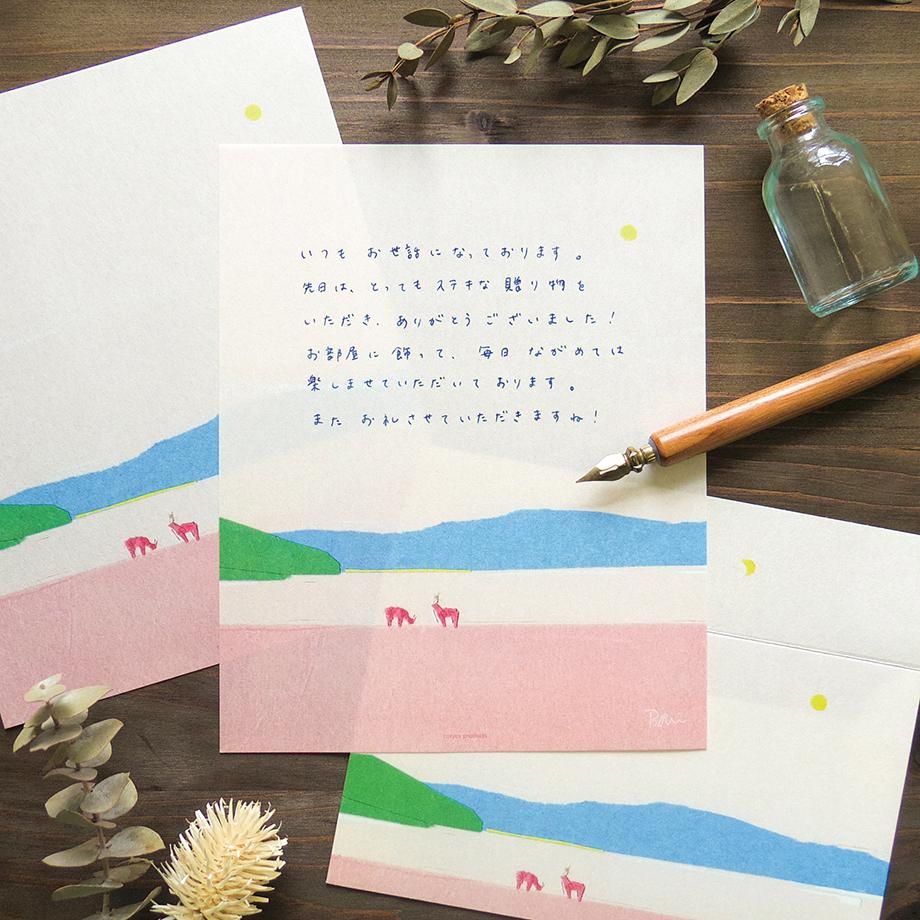 いつも お世話になっております。
先日は、とってもステキな贈り物を
いただき、ありがとうございました！
お部屋に飾って、毎日ながめては
楽しませていただいております。
またお礼させていただきますね！